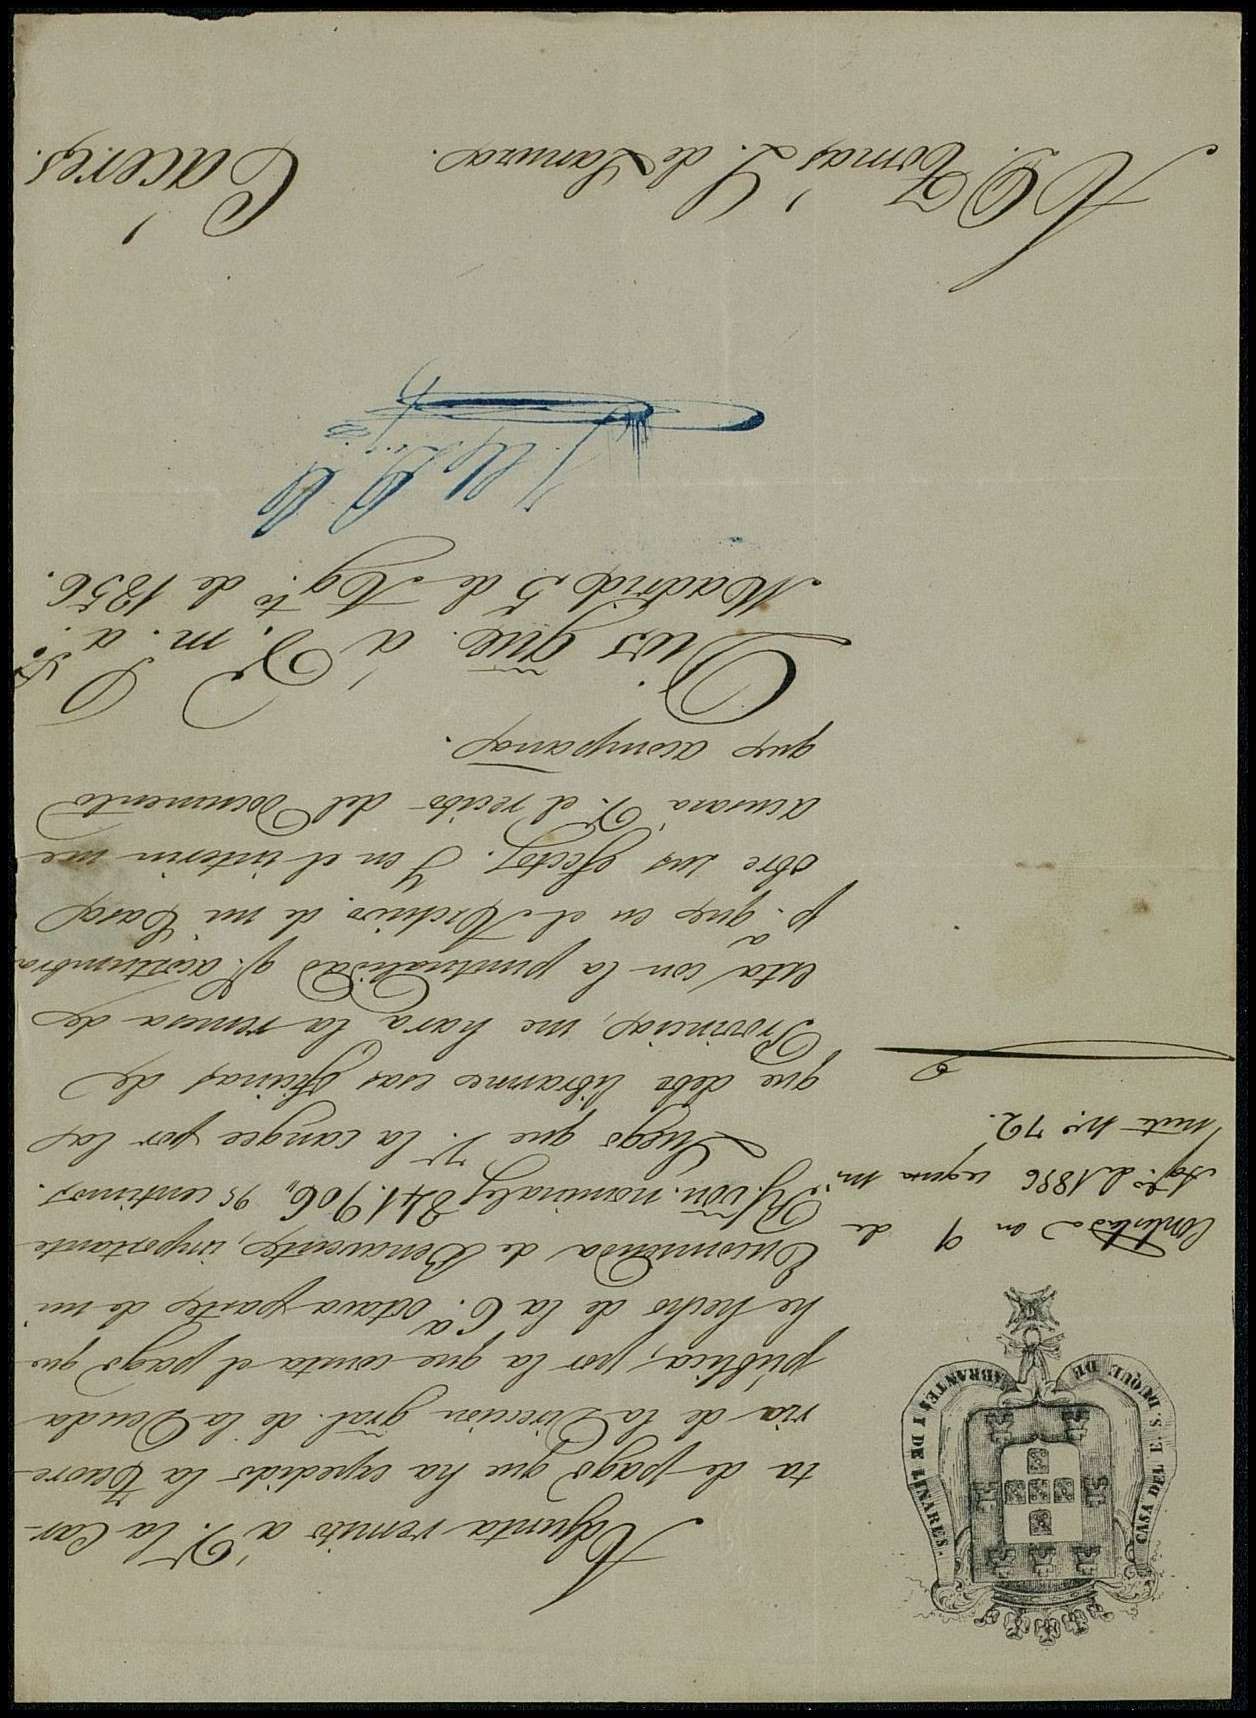 CASA DEL E. S. DUQUE DE ABRANTES I DE LINARES.
Contestada en 9 de
Agto. de 1856 segun mi
nuta no. 72.
Adjunta remito á V. la Car-
ta de pago que ha expedido la Tesore-
ria de la Direccion gral. de la Deuda
pública, por la que consta el pago que
he hecho de la 6.a octava parte de mi
Encomienda de Benavente, importante
Rs. von. nominales 841.906,, 95 centimos.
Luego que V. la cangee por las
que debe librarme esas oficinas de
Provincia, me hará la remesa de
esta con la puntualidad q.e acostumbra
p.a que en el Archivo de mi Casa
obre sus efectos. Y en el interin me
acusará V. el recibo del Documento
que acompaña.
Dios gue. á V. m. a.
Madrid 5 de Agto. de 1856.
A D. Tomás L. de Lanuza.
Cáceres.